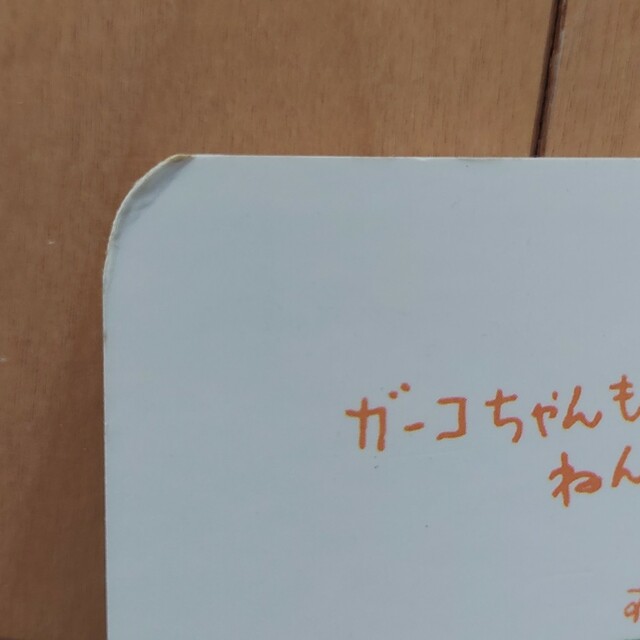 ガーコちゃんも
ねん